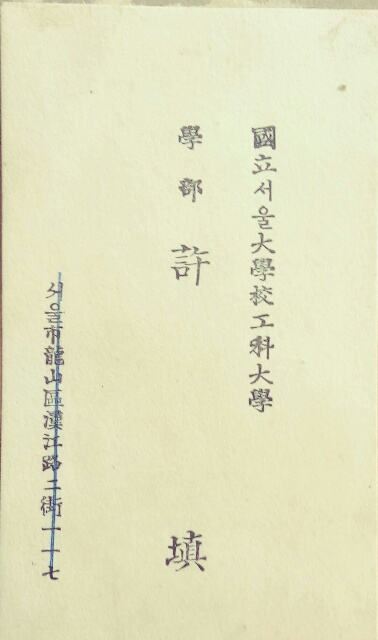 國立서울大學校工科大學
學部 許 塡
서울市龍山區漢江路二街一一七